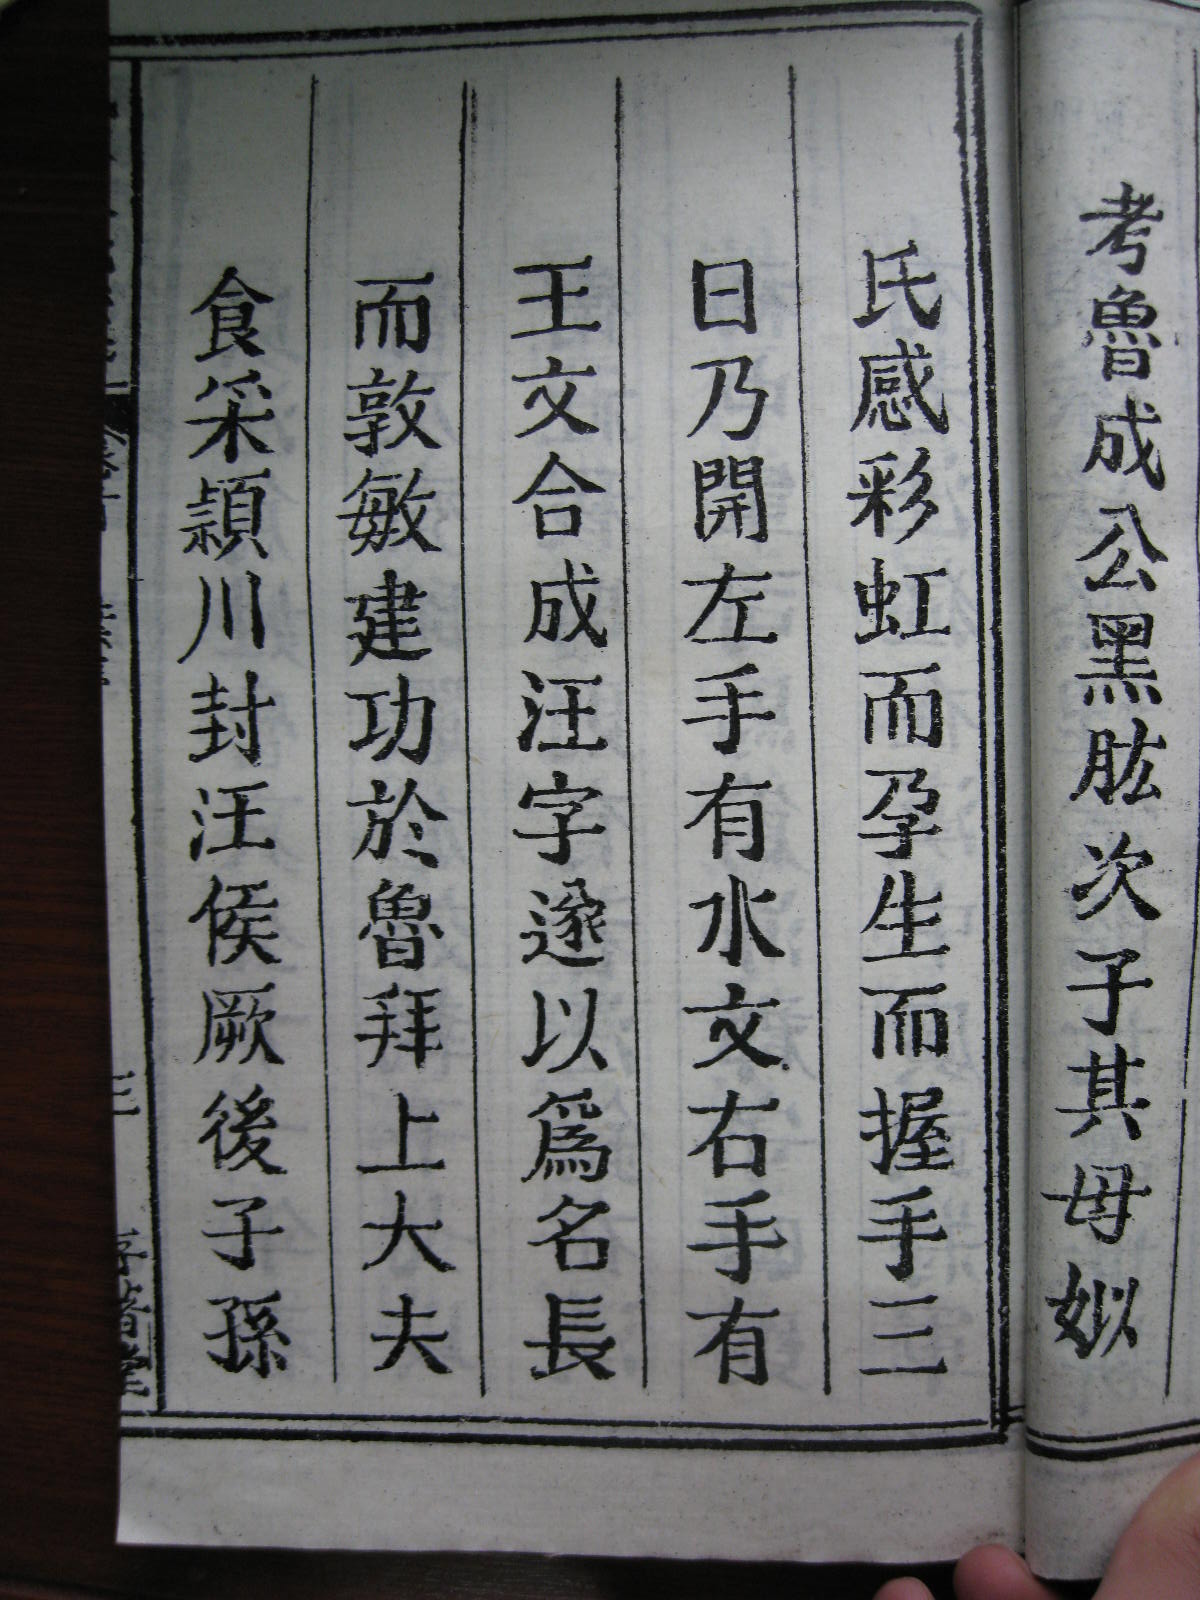 考魯成公黑肱次子其母姒
氏感彩虹而孕生而握手三
日乃開左手有水文右手有
王文合成汪字遂以爲名長
而敦敏建功於魯拜上大夫
食采潁川封汪侯厥後子孫
三